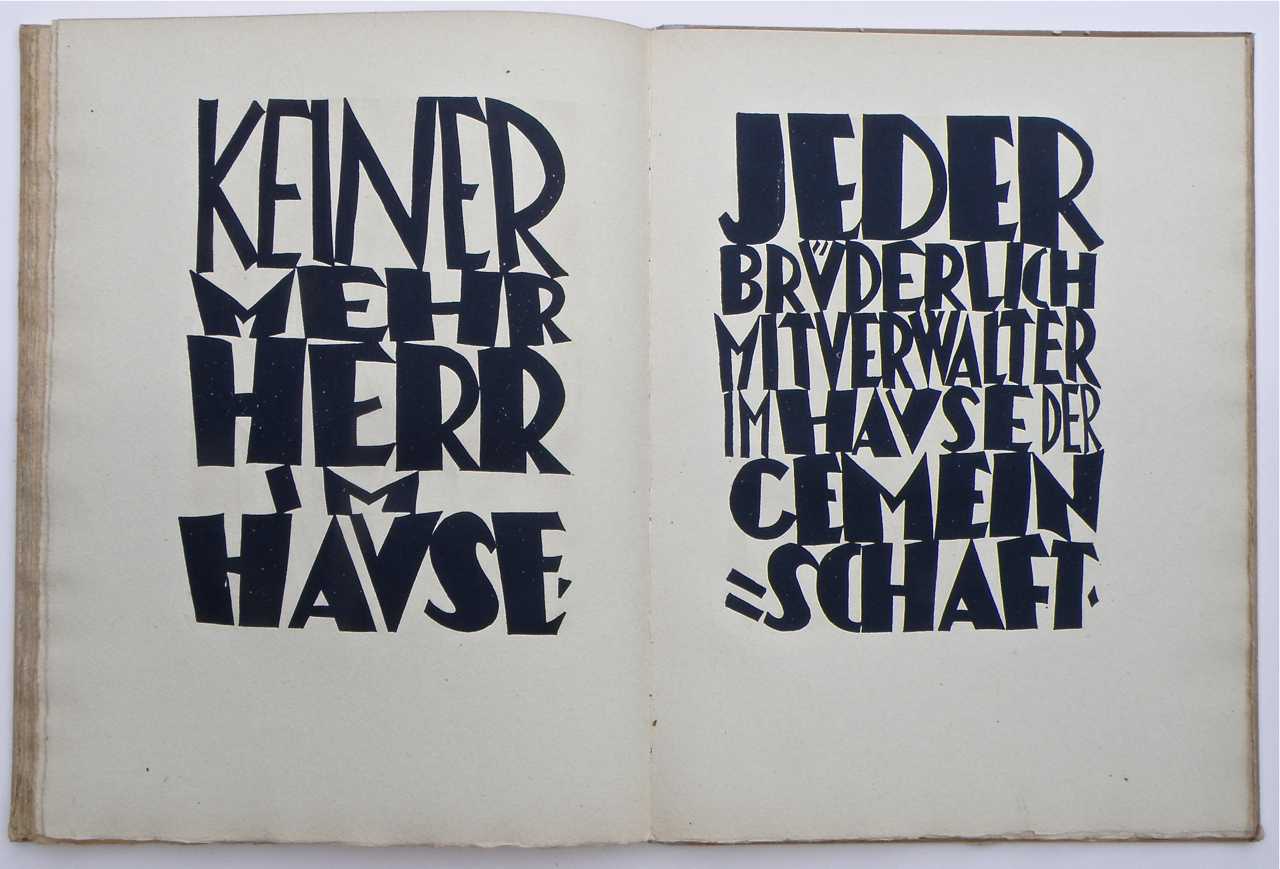 KEINER
MEHR
HERR
IM
HAUSE.
JEDER
BRÜDERLICH
MITVERWALTER
IM HAUSE DER
GEMEIN
=SCHAFT.